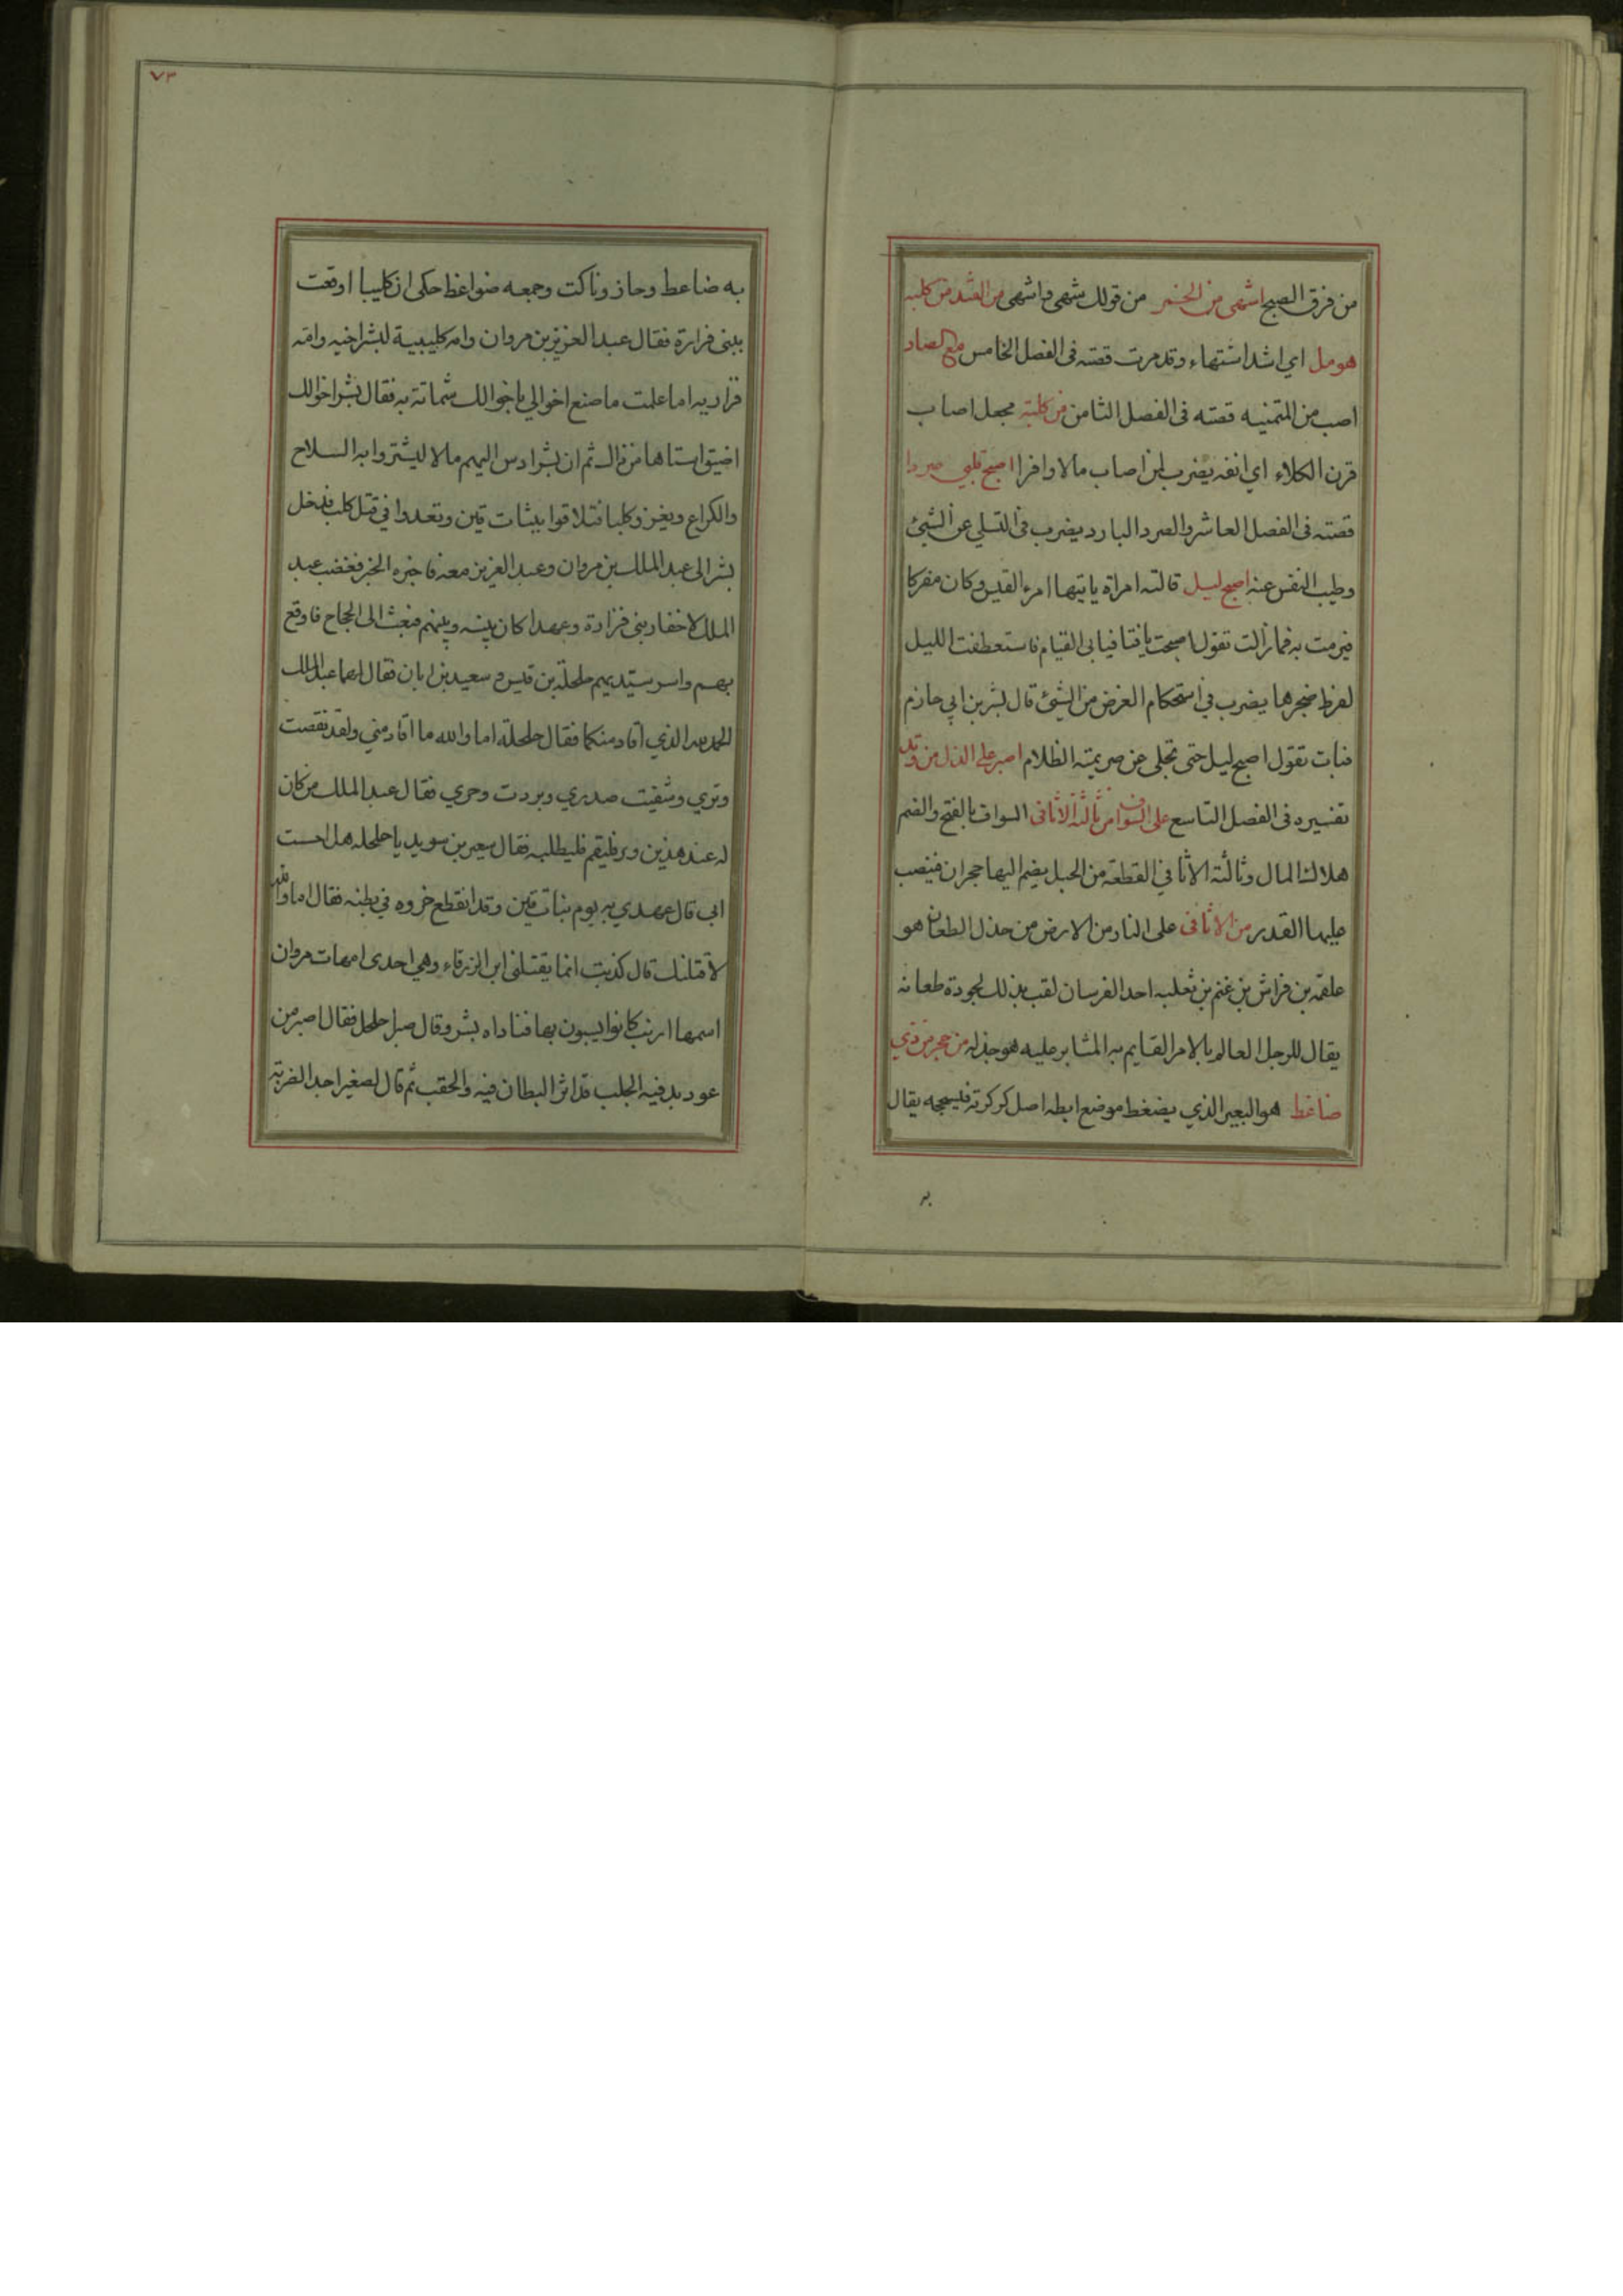 من فرق الصبح اشهى من الخمر من قولك شهى واشهى من كلبه
هومل اي اشد اشتهاء وقد مرت قصته فى الفصل الخامس مع الصاد
اصب من المتمنيه قصته فى الفصل الثامن من كلبته مجعل اصاب
قرن الكلاء اي انفه يضرب لمن اصاب مالا وافرا اصبح قلبي صردا
قصته فى الفصل العاشر والصرد البارد يضرب فى التسلي عن الشيئ
وطيب النفس عنه اصبح ليل قالته امراة ياتيها امرء القيس وكان مفركا
فبرمت به فما زالت تقول اصبحت يا فتا فيابى القيام فاستعطفت الليل
لفرط ضجرها يضرب في استحكام الغرض من الشيئ قال بشر بن ابي حازم
فبات تقول اصبح ليل حتى تجلى عن صريمته الظلام اصبر على الذل من وتد
تفسيره فى الفصل التاسع على السواف من ثالثة الاثافى السواف بالفتح والضم
هلاك المال وثالثة الاثافي القطعة من الجبل يضم اليها حجران فينصب
عليها القدر من الاثافى على النار من الارض من حذل الطعان هو
علقمه بن فراش بن غنم بن ثعلبه احد الفرسان لقب بذلك لجودة طعانه
يقال للرجل العالم بالامر القايم به المثابر عليه هو جذله من حجر من ذي
ضاغط هو البعير الذي يضغط موضع ابطه اصل كركرته فيسحجه يقال
به
٧٣
به ضاعط وحاز وناكت وجمعه ضواغط حكى ان كليبا اوقعت
ببنى فزارة فقال عبد العزيز بن مروان وامه كليبية لبشر اخيه وامه
فزاريه اما علمت ما صنع اخوالي باخوالك شماتة به فقال بشر اخوالك
اضيق استاها من ذالك ثم ان بشرا دس اليهم مالا ليشتروا به السلاح
والكراع ويغز وكلبا فتلاقوا ببنات قين وتعددا في قتل كلب فدخل
بشر الى عبد الملك بن مروان وعبد العزيز معه فاخبره الخبر فغضب عبد
الملك لاخفار بني فزارة وعهدا كان بينه وبينهم فبعث الى الحجاج فاوقع
بهم واسر سيديهم حلحلة بن قيس و سعيد بن ابان فقال لهما عبد الملك
الحمد لله الذي اقاد منكما فقال حلحلة اما والله ما اقاد مني ولقد نقصت
وتري وشفيت صدري وبردت وحري فقال عبد الملك من كان
له عند هذين وتر فليقم فليطلبه فقال سعير بن سويد يا حلحله هل احست
ابي قال عهدي به يوم بنات قين وقد انقطع خروه في بطنه فقال اما والله
لاقتلنك قال كذبت انما يقتلنى ابن الزرقاء وهي احدى امهات مروان
اسمها ارنب كانوا يسبون بها فناداه بشر وقال صبرا حلحل فقال اصبر من
عود بد فيه الجلب قد اثر البطان فيه والحقب ثم قال لصغير اجد الضربة